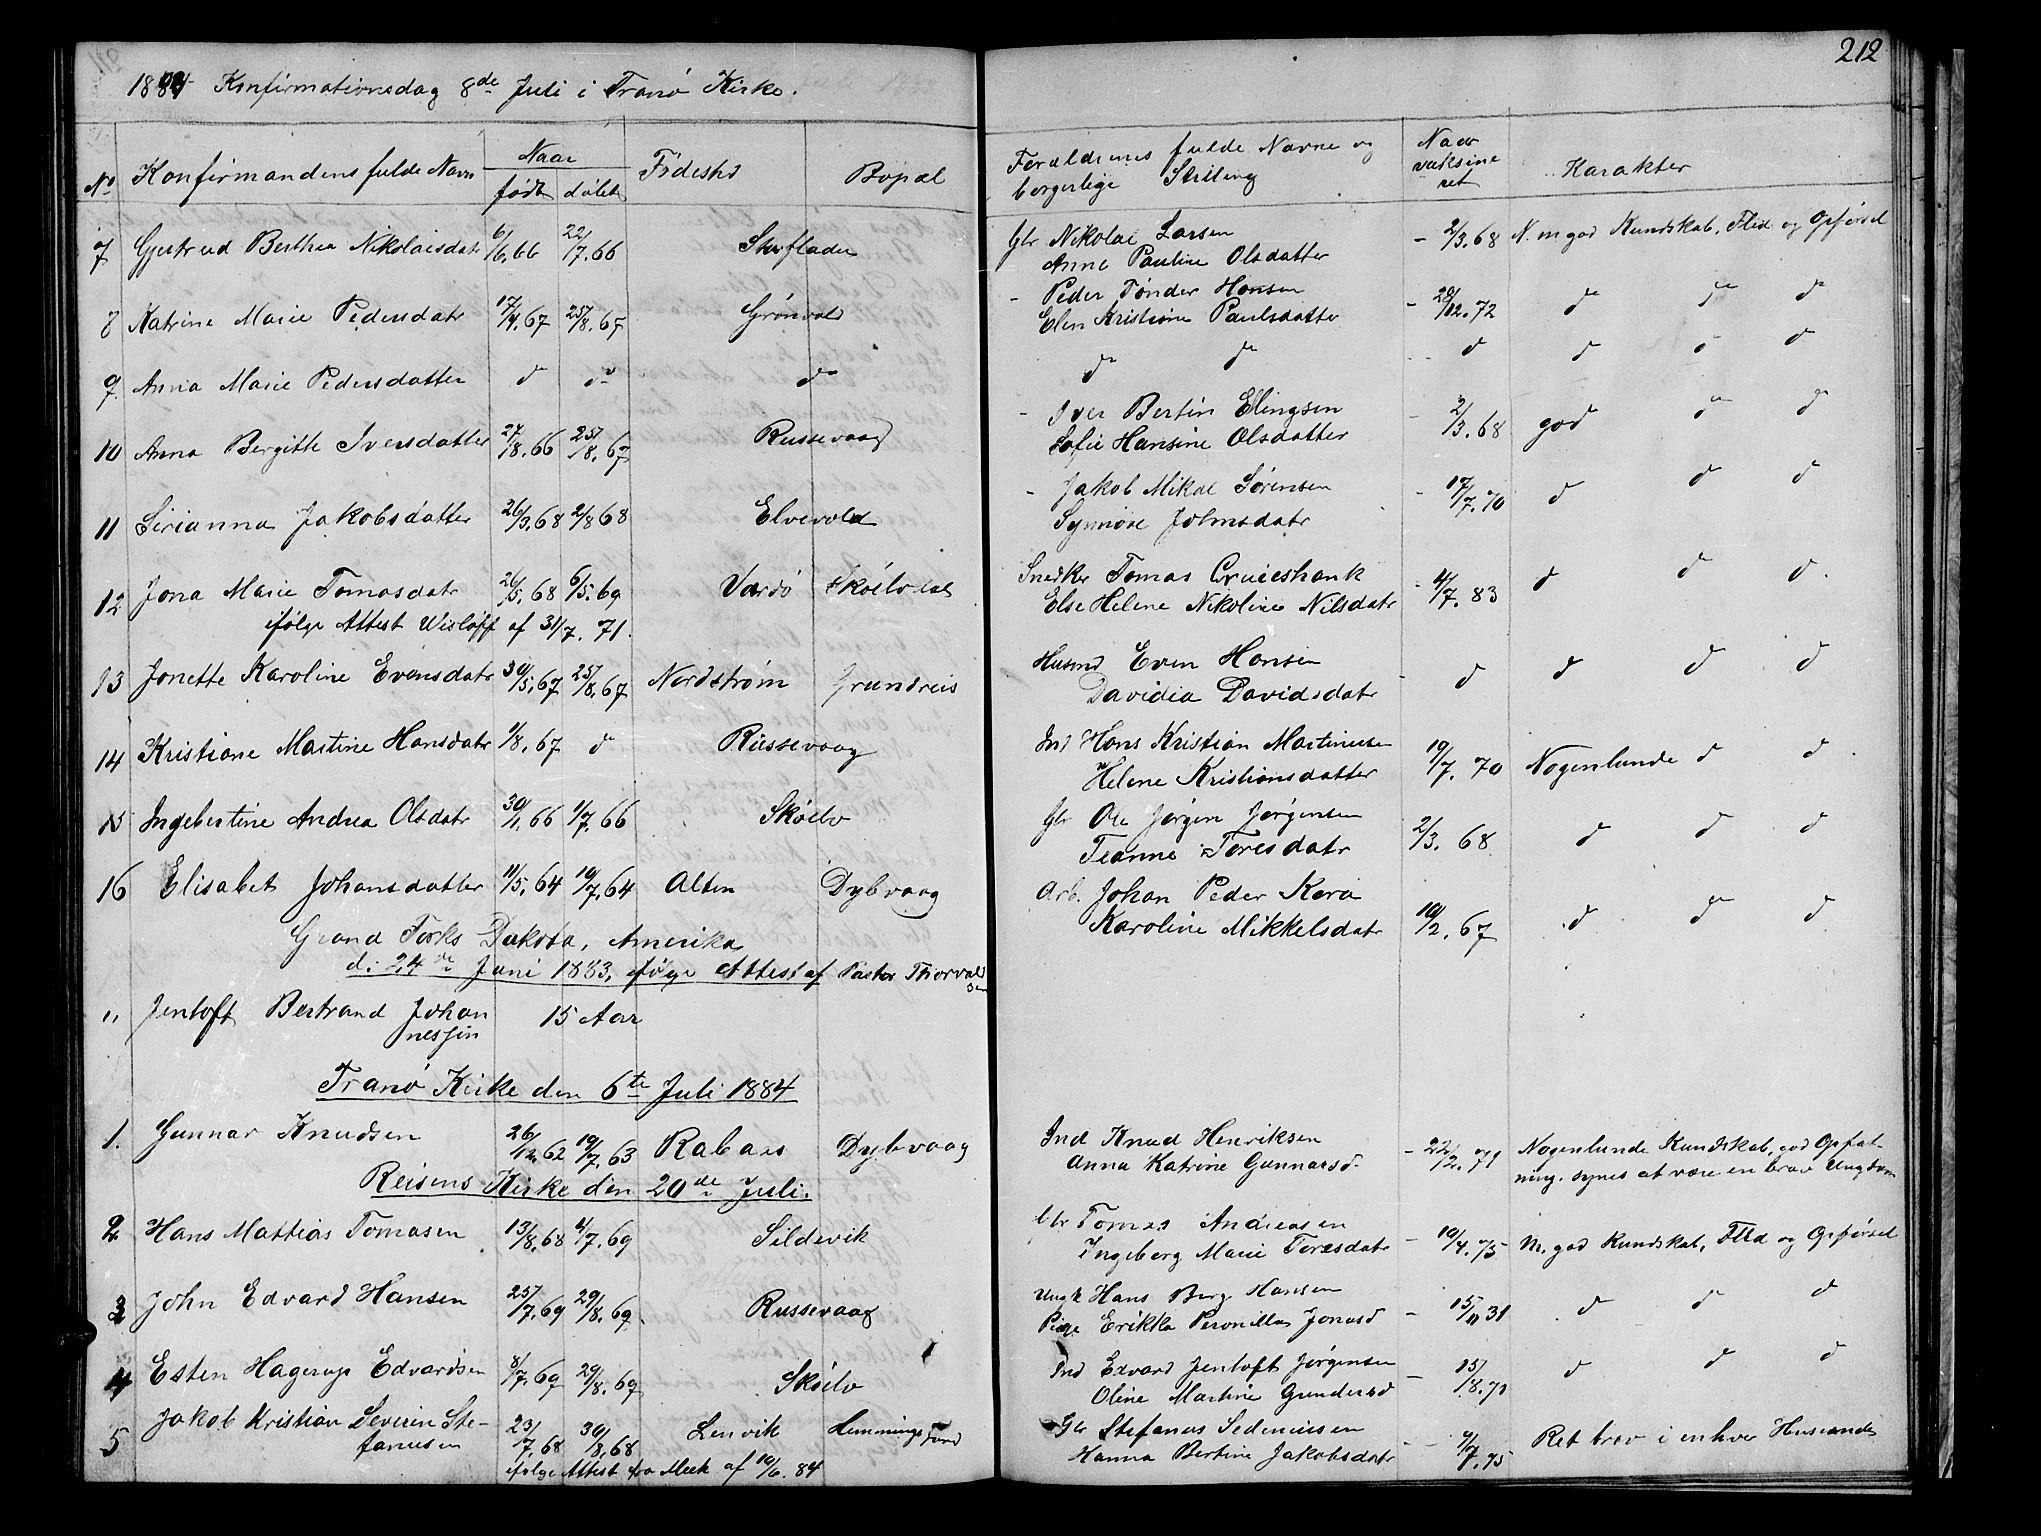 212
Konfirmationsdag 8de Juli i Tranø Kirke.
No Konfirmandens fulde Navn Naar født døbt Fødested Bopæl Forældrenes fulde Navne og borgerlige Stilling Naar vaksineret Karakter
7 Gjertrud Berthea Nikolaisdatr 6/6.66 22/7.66 Gbr Nikolai Larsen - 2/3.68 N. m god Kundskab, Flid og Opførsel
Anne Pauline Olsdatter
8 Katrine Marie Pedersdatr 17/4.67 25/8.67 Grønvold - Peder Tønder Hansen - 28/12.72 do do do
Elen Kristine Paulsdatter
9 Anna Marie Pedersdatter do do do do do do do do do
10 Anna Bergitte Iversdatter 27/8.66 25/8.67 Russevaag - Iver Bertin Elingsen - 2/3.68 god do do
Sofie Hansine Olsdatter
11 Sirianna Jakobsdatter 26/3.68 2/8 68 Elvevold - Jakob Mikal Sørensen - 17/7.70 do do do
Synnøve Johnsdatr
12 Jona Marie Tomasdatr 26/5.68 6/5.69 Vardø Skøelvdal Snedker Tomas Cruicshank - 4/7.83 do do do
ifølge Attest Wisløff af 31/7. 71. Else Helene Nikoline Nilsdatr
13 Jonette Karoline Evensdatr 30/5.67 25/8.67 Nordstrøm Grundreis Husmd Even Hansen - do do do do
Davidia Davidsdatr
14 Kristiane Martine Hansdatr 1/8.67 do Russevaag Ind Hans Kristian Martinusen 19/7. 70 Nogenlunde do do
Helene Kristiansdatter
15 Ingebertine Andrea Olsdatr 30/1.66 1/7.66 Skøelv Gbr Ole Jørgen Jørgensen 2/3. 68 do do do
Teanne Toresdatr
16 Elisabet Johansdatter 11/5.64 10/7.64 Alten Dybvaag Arb. Johan Peder Kero 10/2.67 do do do
Karoline Mikkelsdatr
Grand Forks Dakota, Amerika
d: 24de Juni 1883, ifølge Attest af Pastor Thorvaldsen
" Jentoft Bertrand Johannessen 15 Aar
Tranø Kirke den 6te Juli 1884
1. Gunnar Knudsen 26/12.62 19/7.63 Dybvaag Ind Knud Henriksen - 22/2.71 Nogenlunde Kundskab, god Opfatning. synes at være en brav Ungdom
Anna Katrine Gunnarsd.
Reisens Kirke den 20de Juli.
2 Hans Mattias Tomasen 13/8.68 4/7.69 Sildevik Gbr Tomas Andreasen - 10/4.75 M. god Kundskab, Flid og Opførsel
Ingeborg Marie Toresdatr
3 John Edvard Hansen 25/7.69 29/8.69 Russevaag Ungk Hans Berg Hansen - 15/11 31 do do do
Pige Erikka Peronilla Jonasd
4 Esten Hagerup Edvardsen 8/7.69 29/8.69 Skøelv Ind Edvard Jentoft Jørgensen - 15/8.71 do do do
Oline Martine Gundersd
5 Jakob Kristian Severin Stefanusen 23/7.68 30/8.68 Lenvik Hemmingsjord Gbr Stefanus Sedeniusen - 9/7.75 Ret brav i enhver Henseende
Hanna Bertine Jakobsdatr
ifølge Attest fra Meek af 10/6. 84